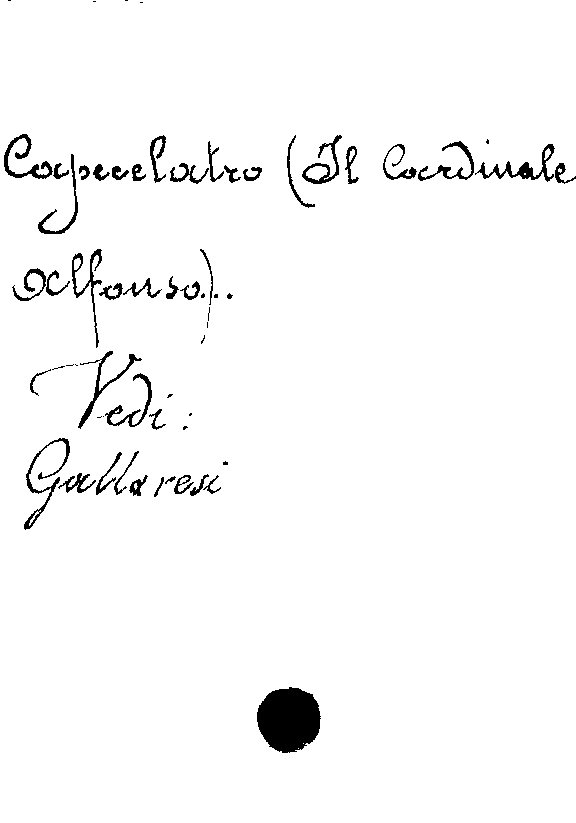 Capecelatro (Il Cardinale
Alfonso)..
Vedi:
Gallaresi